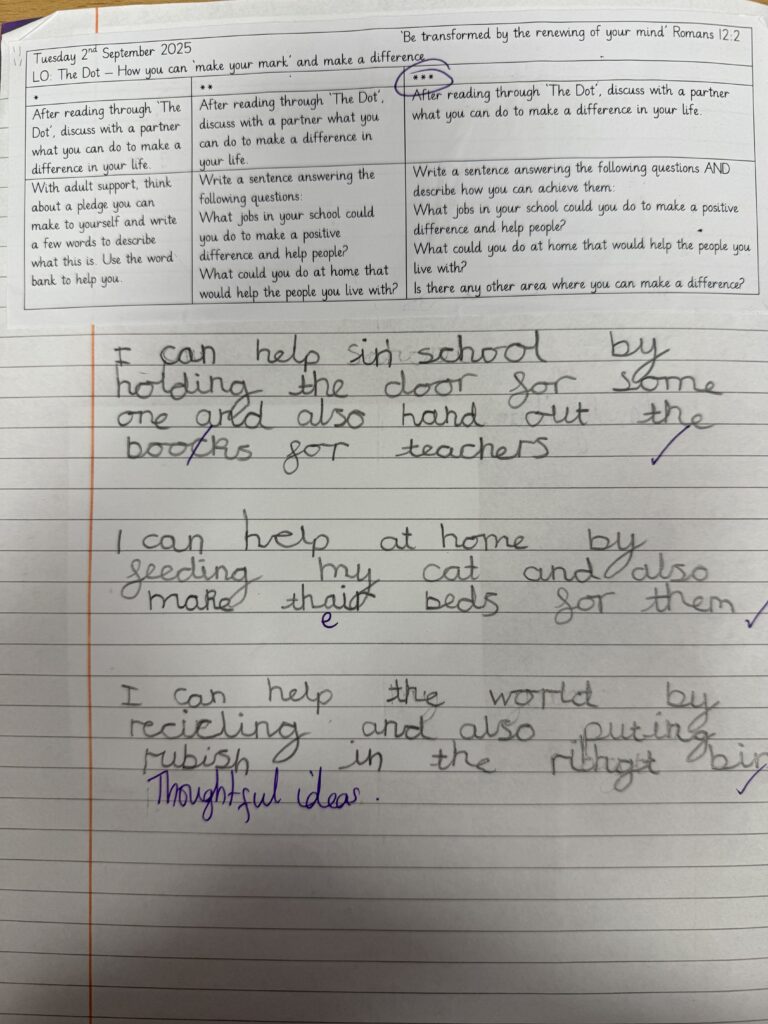 'Be transformed by the renewing of your mind' Romans 12:2
Tuesday 2nd September 2025
LO: The Dot – How you can 'make your mark' and make a difference
*
After reading through 'The
Dot', discuss with a partner
what you can do to make a
difference in your life.
With adult support, think
about a pledge you can
make to yourself and write
a few words to describe
what this is. Use the word
bank to help you.
**
After reading through 'The Dot',
discuss with a partner what you
can do to make a difference in
your life.
Write a sentence answering the
following questions:
What jobs in your school could
you do to make a positive
difference and help people?
What could you do at home that
would help the people you live with?
***
After reading through 'The Dot', discuss with a partner
what you can do to make a difference in your life.
Write a sentence answering the following questions AND
describe how you can achieve them:
What jobs in your school could you do to make a positive
difference and help people?
What could you do at home that would help the people you
live with?
Is there any other area where you can make a difference?
I can help school by
holding the door for some
one and also hand out the
books for teachers
I can help at home by
feeding my cat and also
make thair beds for them
e
I can help the world by
recicling and also puting
rubish in the rihgt bin
Thoughtful ideas.